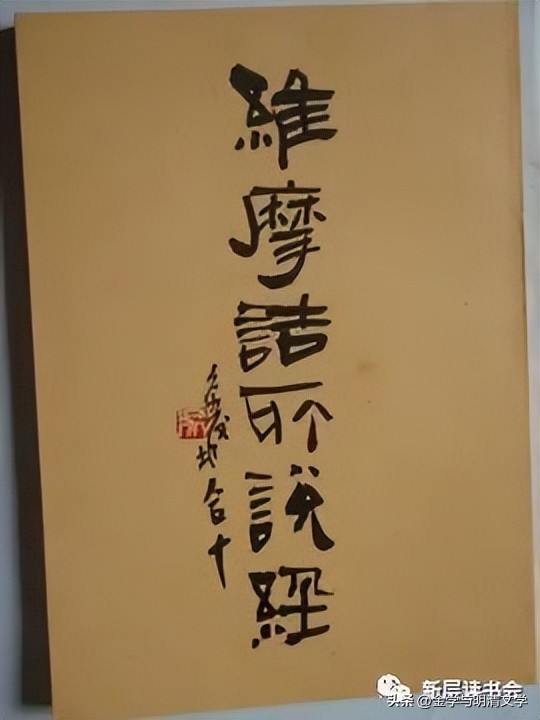 維摩詰所說經
合十
新层读书会
头条 @金学与明清文学